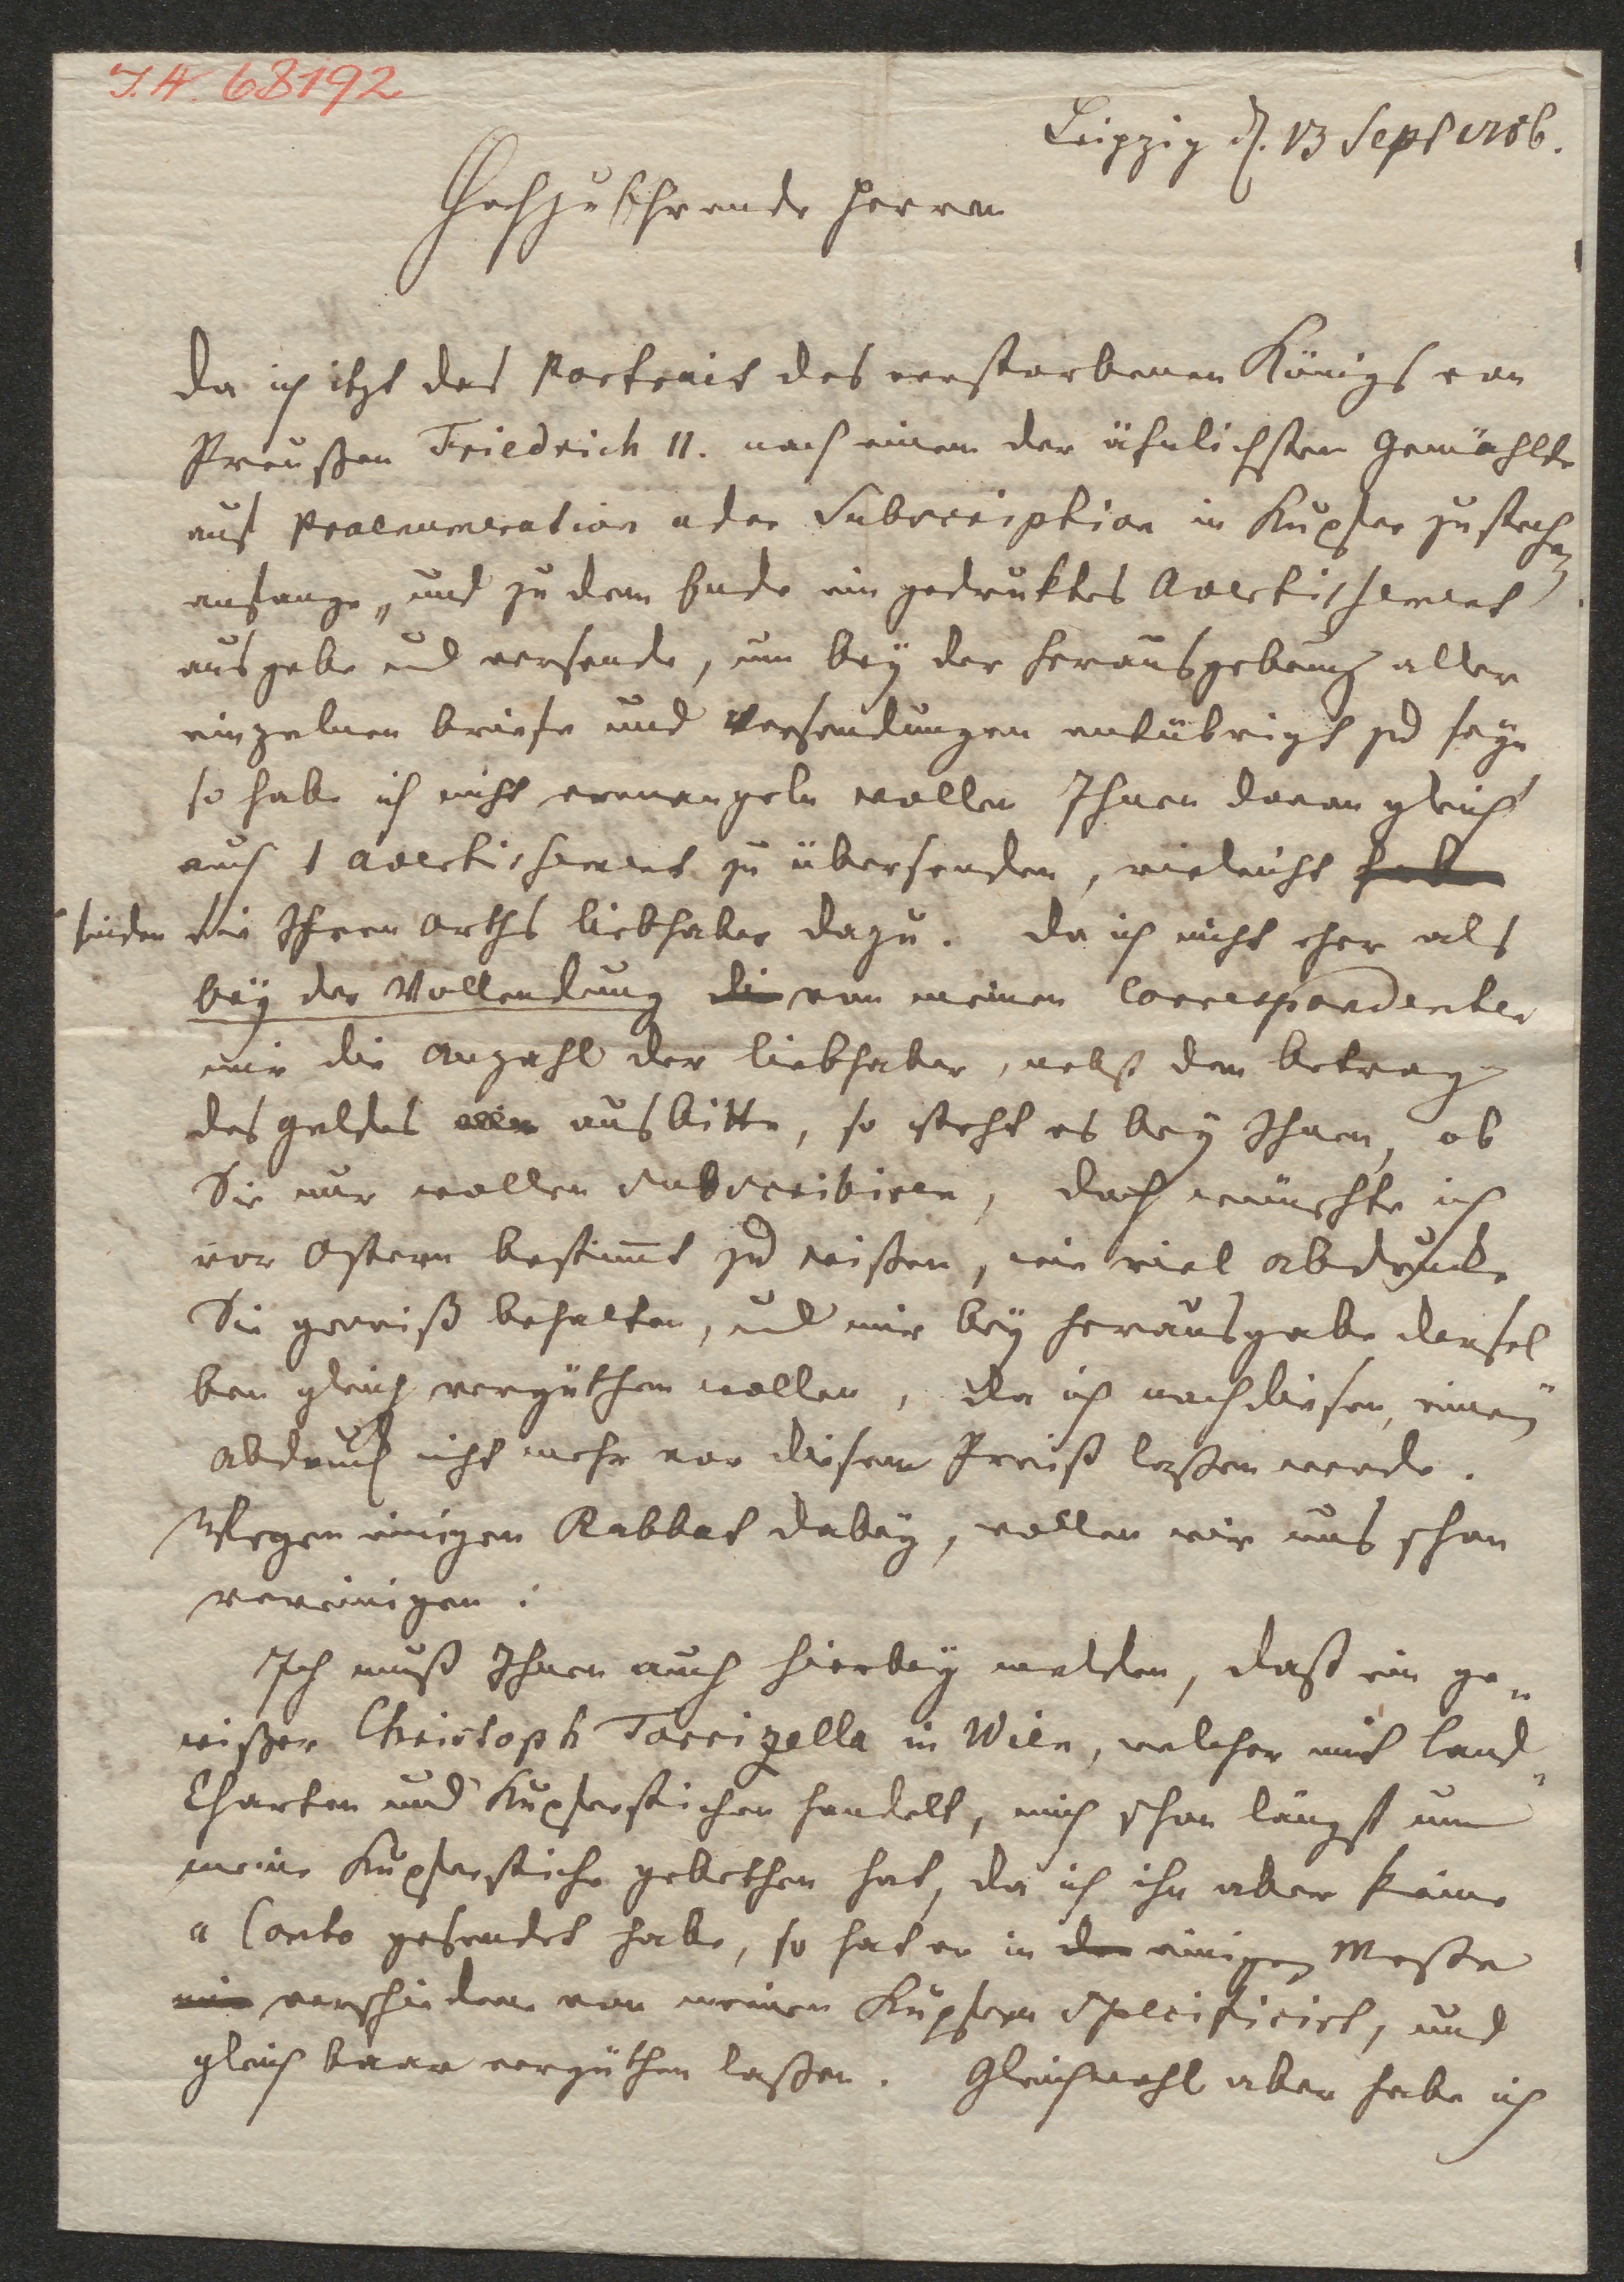 I.N. 68192
Leipzig d. 13 Sept 1786.
Hochzuehrende Herren
Da ich itzt das Portrait des verstorbenen Königs von
Preußen Friedrich II. nach einem der ähnlichsten Gemählde
auf Praenumeration oder Subscription in Kupfer zu stechen
anfange, und zu dem Ende ein gedruktes Avertißement
ausgebe und versende, um bey der Herausgebung aller
einzelnen Briefe und Versendungen entübrigt zu seyn
so habe ich nicht ermangeln wollen Ihnen davon gleich
auch 1 Avertißement zu übersenden, vieleicht
finden Sie Ihren Orths Liebhaber dazu. Da ich nicht eher als
bey der Vollendung die von meinen Correspondenten
mir die Anzahl der Liebhaber, nebst dem Betrag
des Geldes ausbitte, so steht es bey Ihnen, ob
Sie nur wollen subscribiren, doch wünschte ich
vor Ostern bestimmt zu wißen, wie viel Abdrucke
Sie gewiß behalten, und mir bey Herausgabe dersel
ben gleich vergüthen wollen, da ich nach diesen, einen
Abdruck nicht mehr vor diesem Preiß laßen werde.
Wegen einigen Rabbat dabey, wollen wir uns schon
vereinigen.
Ich muß Ihnen auch hierbey melden, daß ein ge„
wißer Christoph Torricella in Wien, welcher mit Land„
Charten und Kupferstichen handelt, mich schon längst um
meine Kupferstiche gebethen hat, da ich ihn aber keine
a Conto gesendet habe, so hat er in der einigen Meßen
mir verschiedene von meinen Kupfern specificirt, und
gleich baar vergüthen laßen. Gleichwohl aber habe ich